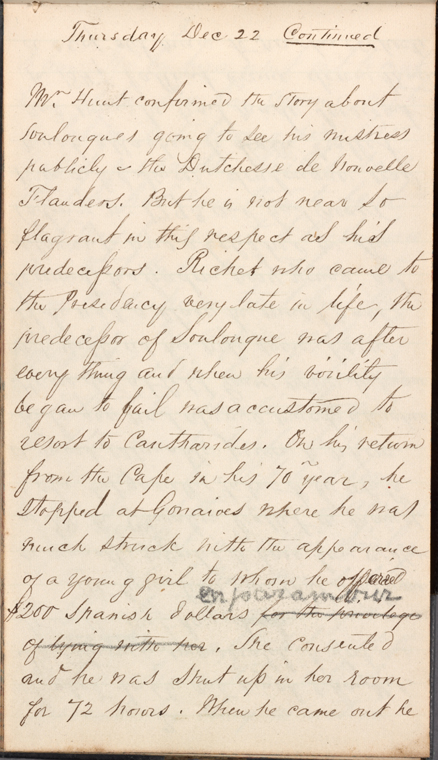 Thursday Dec 22 Continued
Mr Hunt confirmed the story about
Soulouques going to see his mistress
publicly - the Dutchesse de Nouvelle
Flanders. But he is not near so
flagrant in this respect as his
predecessors. Richet who came to
the Presidency very late in life, the
predecessor of Soulouque was after
every thing and when his virility
began to fail was accustomed to
resort to Cantharides. On his return
from the Cape in his 70th year, he
stopped at Gonaives where he was
much struck with the appearance
of a young girl to whom he offered
en jour amour
$200 Spanish dollars for the privilege
of lying with her. She consented
and he was shut up in her room
for 72 hours. When he came out he